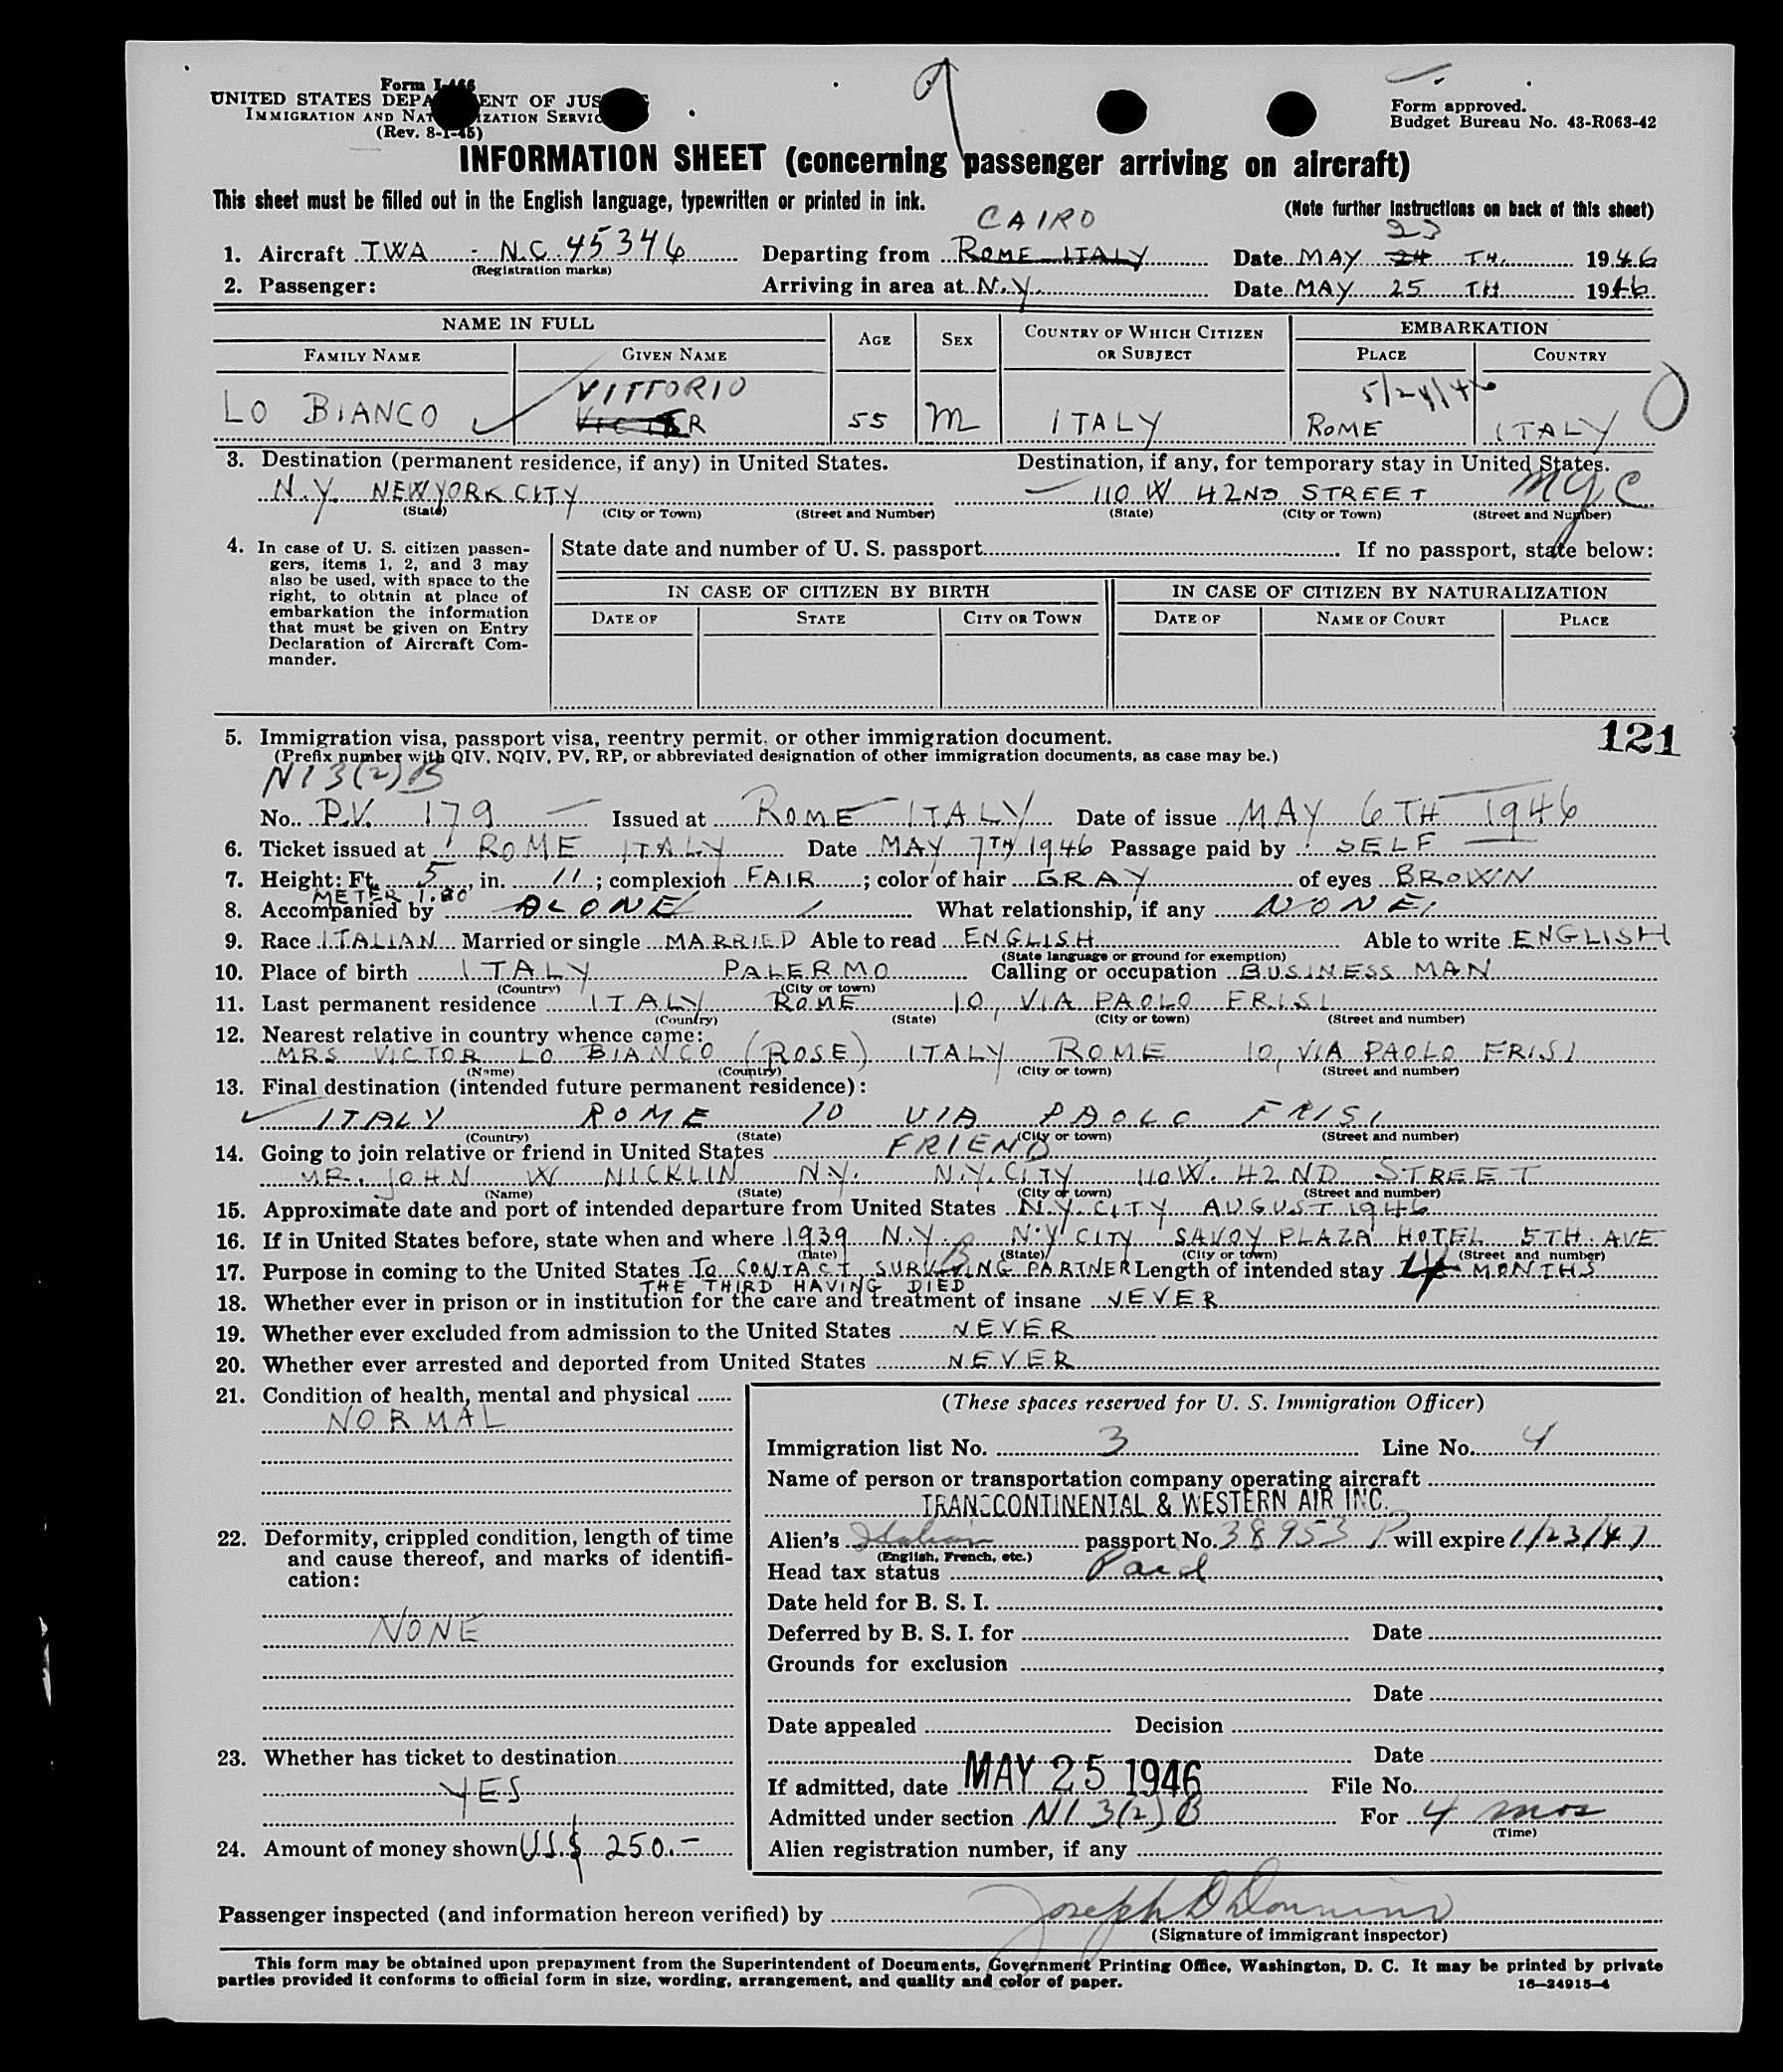 Form I-466
UNITED STATES DEPARTMENT OF JUSTICE
IMMIGRATION AND NATURALIZATION SERVICE
(Rev. 8-1-45)
Form approved.
Budget Bureau No. 43-R063-42
INFORMATION SHEET (concerning passenger arriving on aircraft)
This sheet must be filled out in the English language, typewritten or printed in ink.
(Note further instructions on back of this sheet)
CAIRO
23
1. Aircraft TWA - N.C. 45346 Departing from ROME ITALY Date MAY 24 TH. 1946
(Registration marks)
2. Passenger: Arriving in area at N.Y. Date MAY 25 TH 1946
NAME IN FULL AGE SEX COUNTRY OF WHICH CITIZEN OR SUBJECT EMBARKATION
FAMILY NAME GIVEN NAME PLACE COUNTRY
VITTORIO 5/24/46
LO BIANCO VICTOR 55 M ITALY ROME ITALY
3. Destination (permanent residence, if any) in United States. Destination, if any, for temporary stay in United States.
N.Y. NEW YORK CITY 110 W 42ND STREET NYC
(State) (City or Town) (Street and Number) (State) (City or Town) (Street and Number)
4. In case of U. S. citizen passen-
gers, items 1, 2, and 3 may
also be used, with space to the
right, to obtain at place of
embarkation the information
that must be given on Entry
Declaration of Aircraft Com-
mander.
State date and number of U. S. passport If no passport, state below:
IN CASE OF CITIZEN BY BIRTH IN CASE OF CITIZEN BY NATURALIZATION
DATE OF STATE CITY OR TOWN DATE OF NAME OF COURT PLACE
121
5. Immigration visa, passport visa, reentry permit, or other immigration document.
(Prefix number with QIV, NQIV, PV, RP, or abbreviated designation of other immigration documents, as case may be.)
NI 3(2)B
No. P.V. 179 Issued at ROME ITALY Date of issue MAY 6TH 1946
6. Ticket issued at ROME ITALY Date MAY 7TH 1946 Passage paid by SELF
7. Height: Ft. 5, in. 11; complexion FAIR; color of hair GRAY of eyes BROWN
METER 1.80
8. Accompanied by ALONE What relationship, if any NONE
9. Race ITALIAN Married or single MARRIED Able to read ENGLISH Able to write ENGLISH
(State language or ground for exemption)
10. Place of birth ITALY PALERMO Calling or occupation BUSINESS MAN
(Country) (City or town)
11. Last permanent residence ITALY ROME 10, VIA PAOLO FRISI
(Country) (State) (City or town) (Street and number)
12. Nearest relative in country whence came:
MRS VICTOR LO BIANCO (ROSE) ITALY ROME 10, VIA PAOLO FRISI
(Name) (Country) (City or town) (Street and number)
13. Final destination (intended future permanent residence):
ITALY ROME 10 VIA PAOLO FRISI
(Country) (State) (City or town) (Street and number)
14. Going to join relative or friend in United States FRIEND
MR. JOHN W NICKLIN N.Y. N.Y. CITY 110 W. 42ND STREET
(Name) (State) (City or town) (Street and number)
15. Approximate date and port of intended departure from United States N.Y. CITY AUGUST 1946
16. If in United States before, state when and where 1939 N.Y. N.Y CITY SAVOY PLAZA HOTEL 5TH. AVE.
(Date) (State) (City or town) (Street and number)
B
17. Purpose in coming to the United States TO CONTACT SURVIVING PARTNER Length of intended stay 4 MONTHS
THE THIRD HAVING DIED
18. Whether ever in prison or in institution for the care and treatment of insane NEVER
19. Whether ever excluded from admission to the United States NEVER
20. Whether ever arrested and deported from United States NEVER
21. Condition of health, mental and physical
NORMAL
22. Deformity, crippled condition, length of time
and cause thereof, and marks of identifi-
cation:
NONE
23. Whether has ticket to destination
YES
24. Amount of money shown U.S.$ 250.-
(These spaces reserved for U. S. Immigration Officer)
Immigration list No. 3 Line No. 4
Name of person or transportation company operating aircraft
TRANSCONTINENTAL & WESTERN AIR INC.
Alien's Italian passport No. 38953 P will expire 1/23/47
(English, French, etc.)
Head tax status Paid
Date held for B. S. I.
Deferred by B. S. I. for Date
Grounds for exclusion
Date
Date appealed Decision
Date
If admitted, date MAY 25 1946 File No.
Admitted under section NI 3(2) B For 4 mos
(Time)
Alien registration number, if any
Passenger inspected (and information hereon verified) by Joseph D
(Signature of immigrant inspector)
This form may be obtained upon prepayment from the Superintendent of Documents, Government Printing Office, Washington, D. C. It may be printed by private
parties provided it conforms to official form in size, wording, arrangement, and quality and color of paper.
16—34915-4